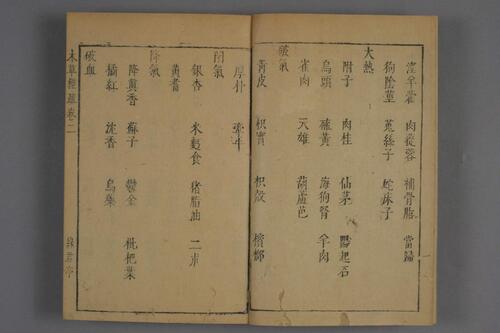 淫羊藿 肉蓯蓉 補骨脂 當歸
狗陰莖 菟絲子 蛇床子
大熱
附子 肉桂 仙茅 陽起石
烏頭 硫黃 海狗腎 羊肉
雀肉 天雄 葫蘆芭
破氣
青皮 枳實 枳殼 檳榔
厚朴 牽牛
閉氣
銀杏 米麪食 猪脂油 二朮
黃耆
降氣
降真香 蘇子 鬱金 枇杷葉
橘紅 沈香 烏藥
破血
本草經疏卷二
綠君亭